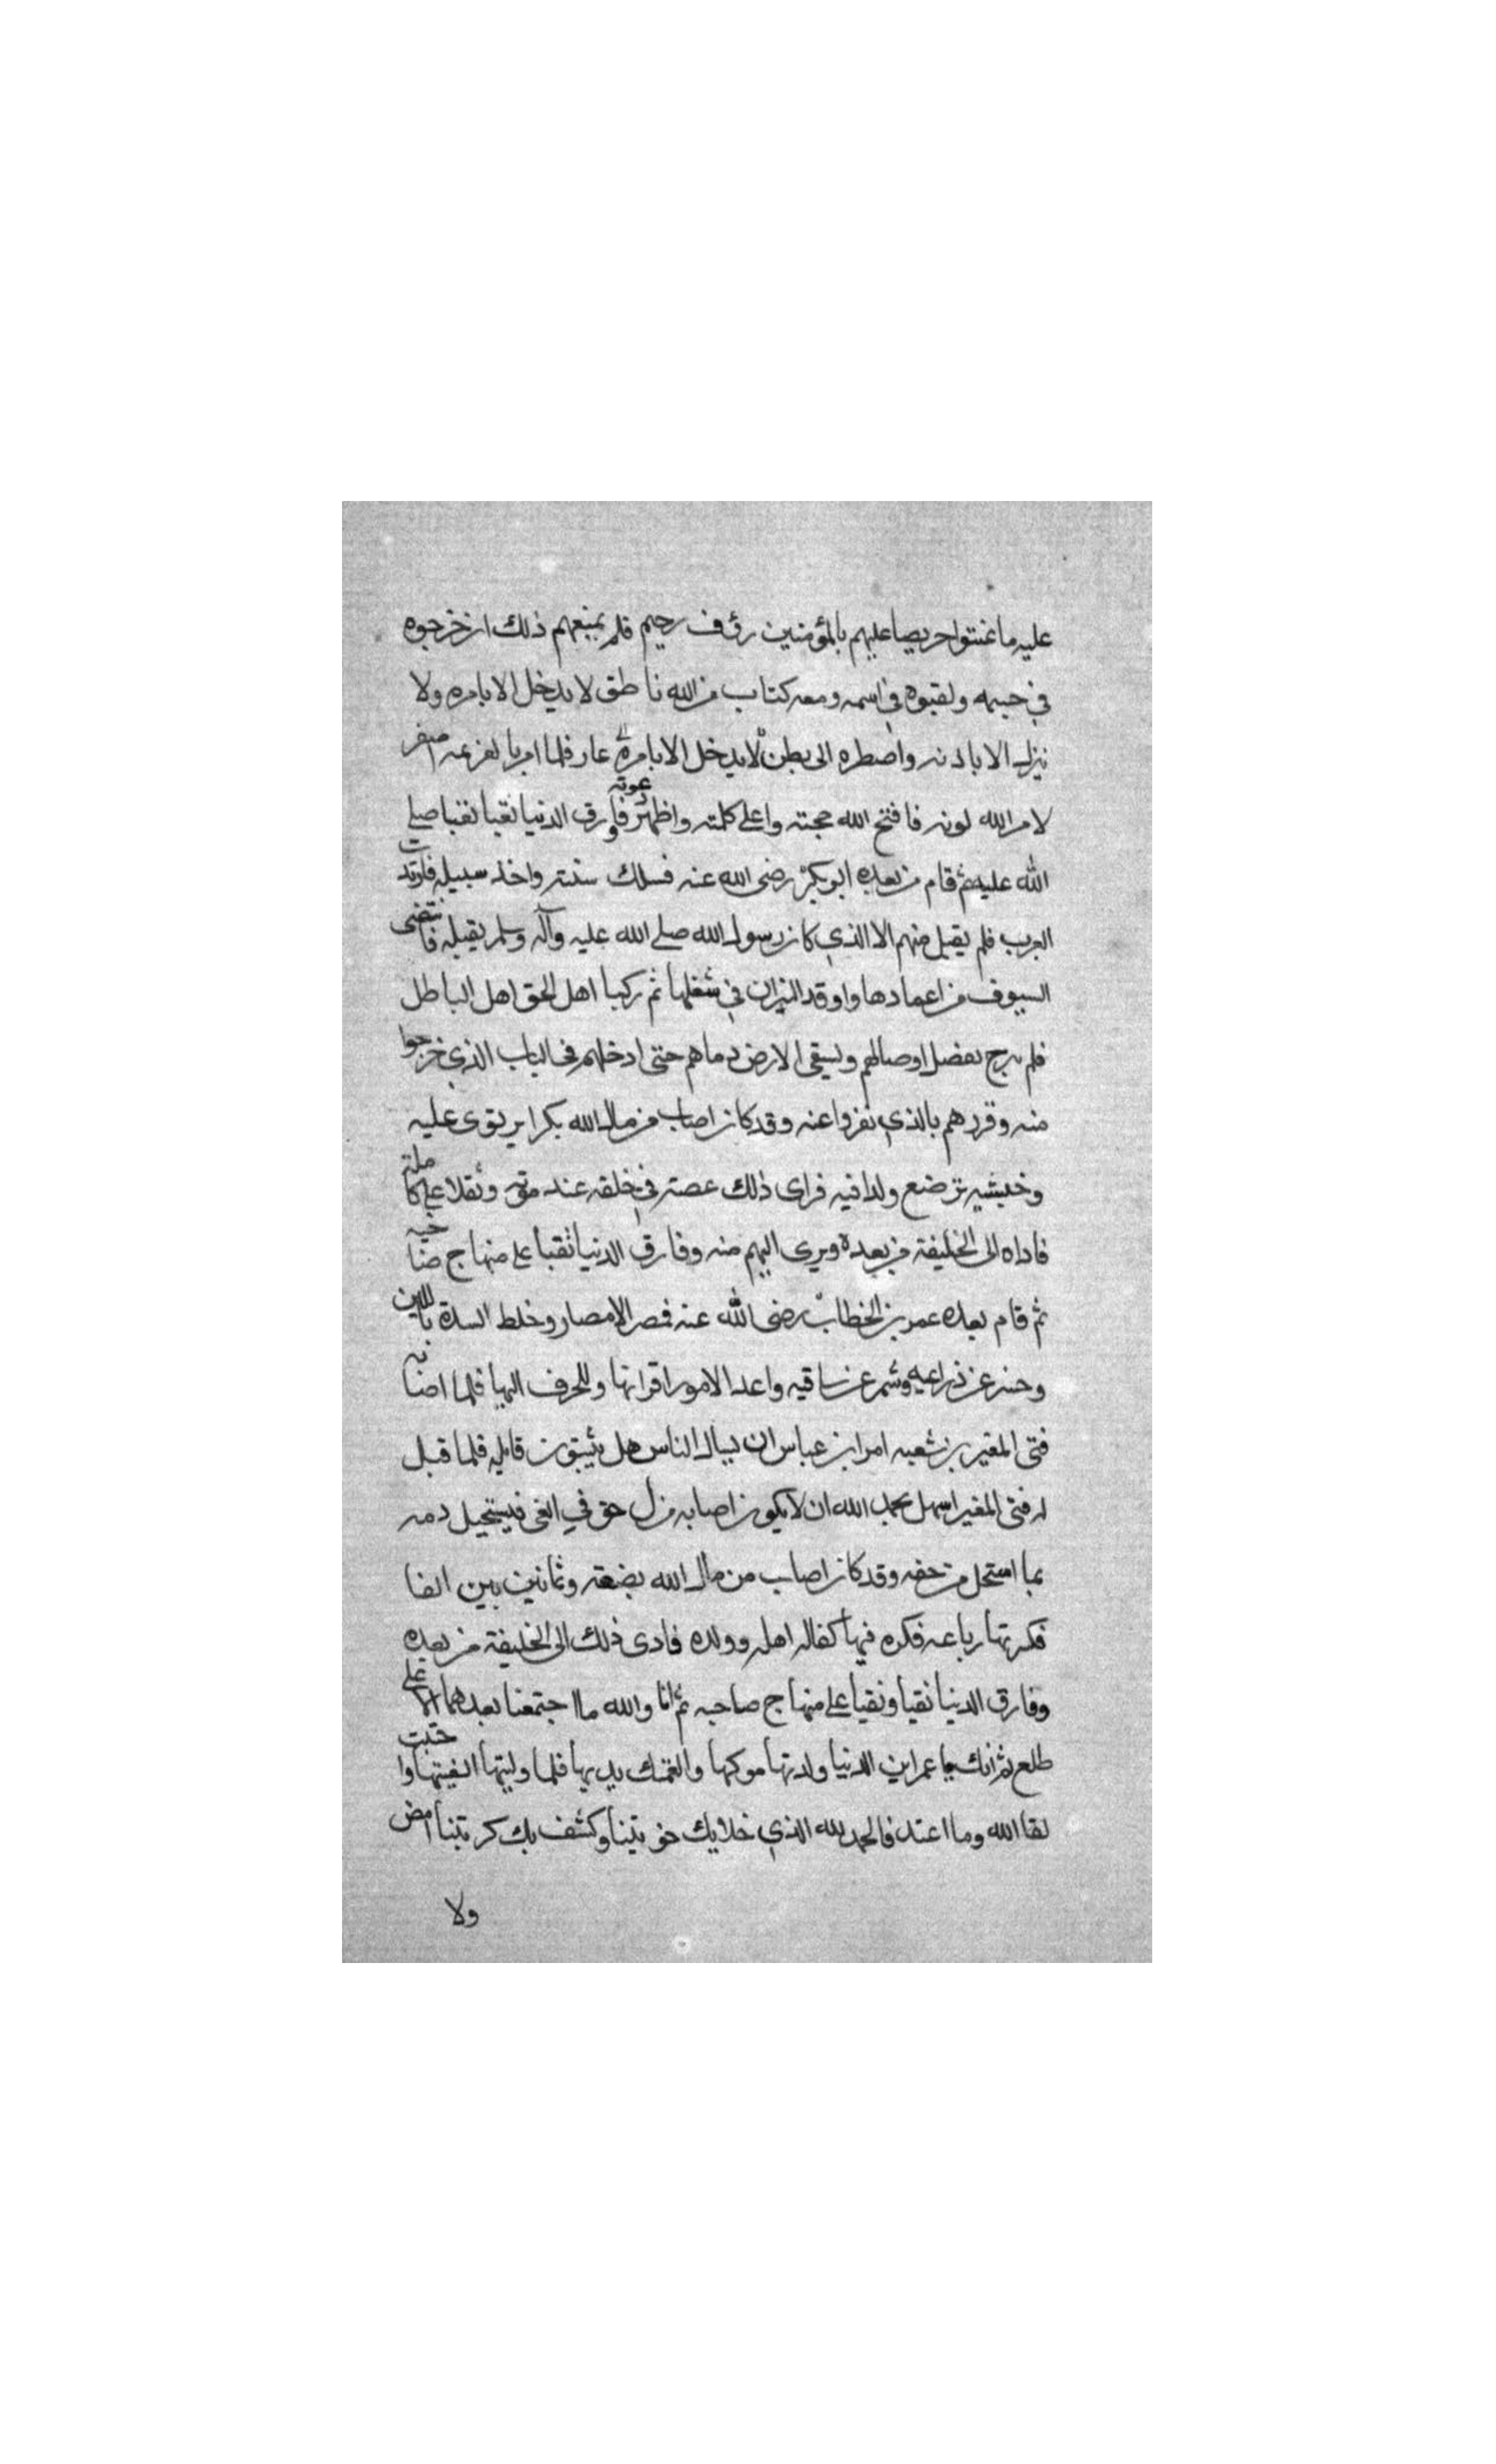 عليه ما غنتوا حريصا عليهم بالمؤمنين رؤف رحيم فلم يمنعهم ذلك ان خرجوه
في حبسه ولقبوه في اسمه ومعه كتاب من الله ناطق لا يدخل الا بامره ولا
نيزل الا باذنه واضطره الى بطن لا يدخل الا بامره عار فلما امر بالعزعه اصفر
لامر الله لونه فافتح الله حجته واعلى كلمته واظهر دعوته فارق الدنيا نقيا نقبا صلى
الله عليه ثم قام من بعده ابو بكر رضى الله عنه فسلك سنته واخذ سبيله فارتدت
العرب فلم يقبل منهم الا الذي كان رسول الله صلى الله عليه وآله وسلم يقبله فانتضى
السيوف من اعمادها واوقد النيران في شغلها ثم ركبا اهل الحق اهل الباطل
فلم برج يفضل اوصالهم ويسقى الارض دماهم حتى ادخلهم فى الباب الذي خرجوا
منه وقررهم بالذي نفروا عنه وقد كان اصاب من مال الله بكرا يرتوى عليه
وخبشيه ترضع ولدا فيه فراى ذلك عصته في خلقه عند موته وثقلا على كاملته
فاداه الى الخليفة من بعده وبرى اليهم منه وفارق الدنيا نقبا على منهاج صاحبه
ثم قام بعده عمر بن الخطاب رضى الله عنه فصر الامصار وخلط السدة باللين
وحسر عن ذراعيه وشمر عن ساقيه واعد الامور اقرانها وللحرف الهيا فلما اصابه
فتى المغير بن شعبه امر ابن عباس ان يسال الناس هل يثيبون قاتليه فلما قبل
له فتى المغير اسهل بحمد الله ان لا يكون اصابه من ل حق في الغى فيستحيل دمه
بما استحل من حفه وقد كان اصاب من مال الله بضعة وثمانين بين الفا
فكر بها رباعه فكره فيها كفاله اهله وولده فادى ذلك الى الخليفة من بعده
وفارق الدنيا نقيا ونقيا على منهاج صاحبه ثم انا والله ما اجتمعنا بعدهما الا على
طلع ثم انك يا عمر ابن الدنيا ولدتها موكها والغمتك يديها فلما وليتها الغيتها واحببت
لقا الله وما اعتد فالحمد لله الذي خلا بك حو بتنا وكشف بك كر بتنا امض
ولا